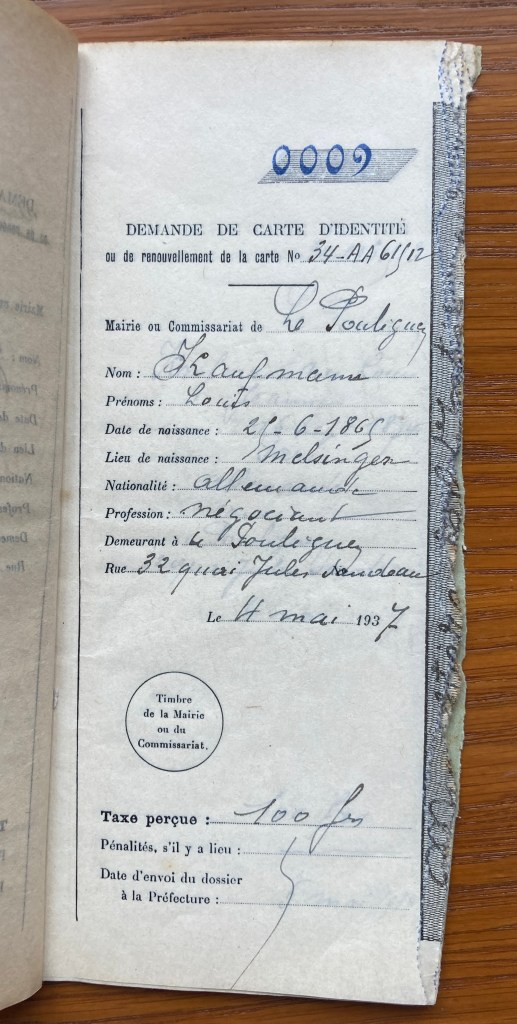 0009
DEMANDE DE CARTE D'IDENTITÉ
ou de renouvellement de la carte No 34-AA 61512
Mairie ou Commissariat de Le Pouliguen
Nom : Kaufmann
Prénoms : Louis
Date de naissance : 25-6-1865
Lieu de naissance : Melsingen
Nationalité : allemande
Profession : négociant
Demeurant à Le Pouliguen
Rue 32 quai Jules Sandeau
Le 4 mai 1937
Timbre
de la Mairie
ou du
Commissariat.
Taxe perçue : 100 frs
Pénalités, s'il y a lieu :
Date d'envoi du dossier
à la Préfecture :